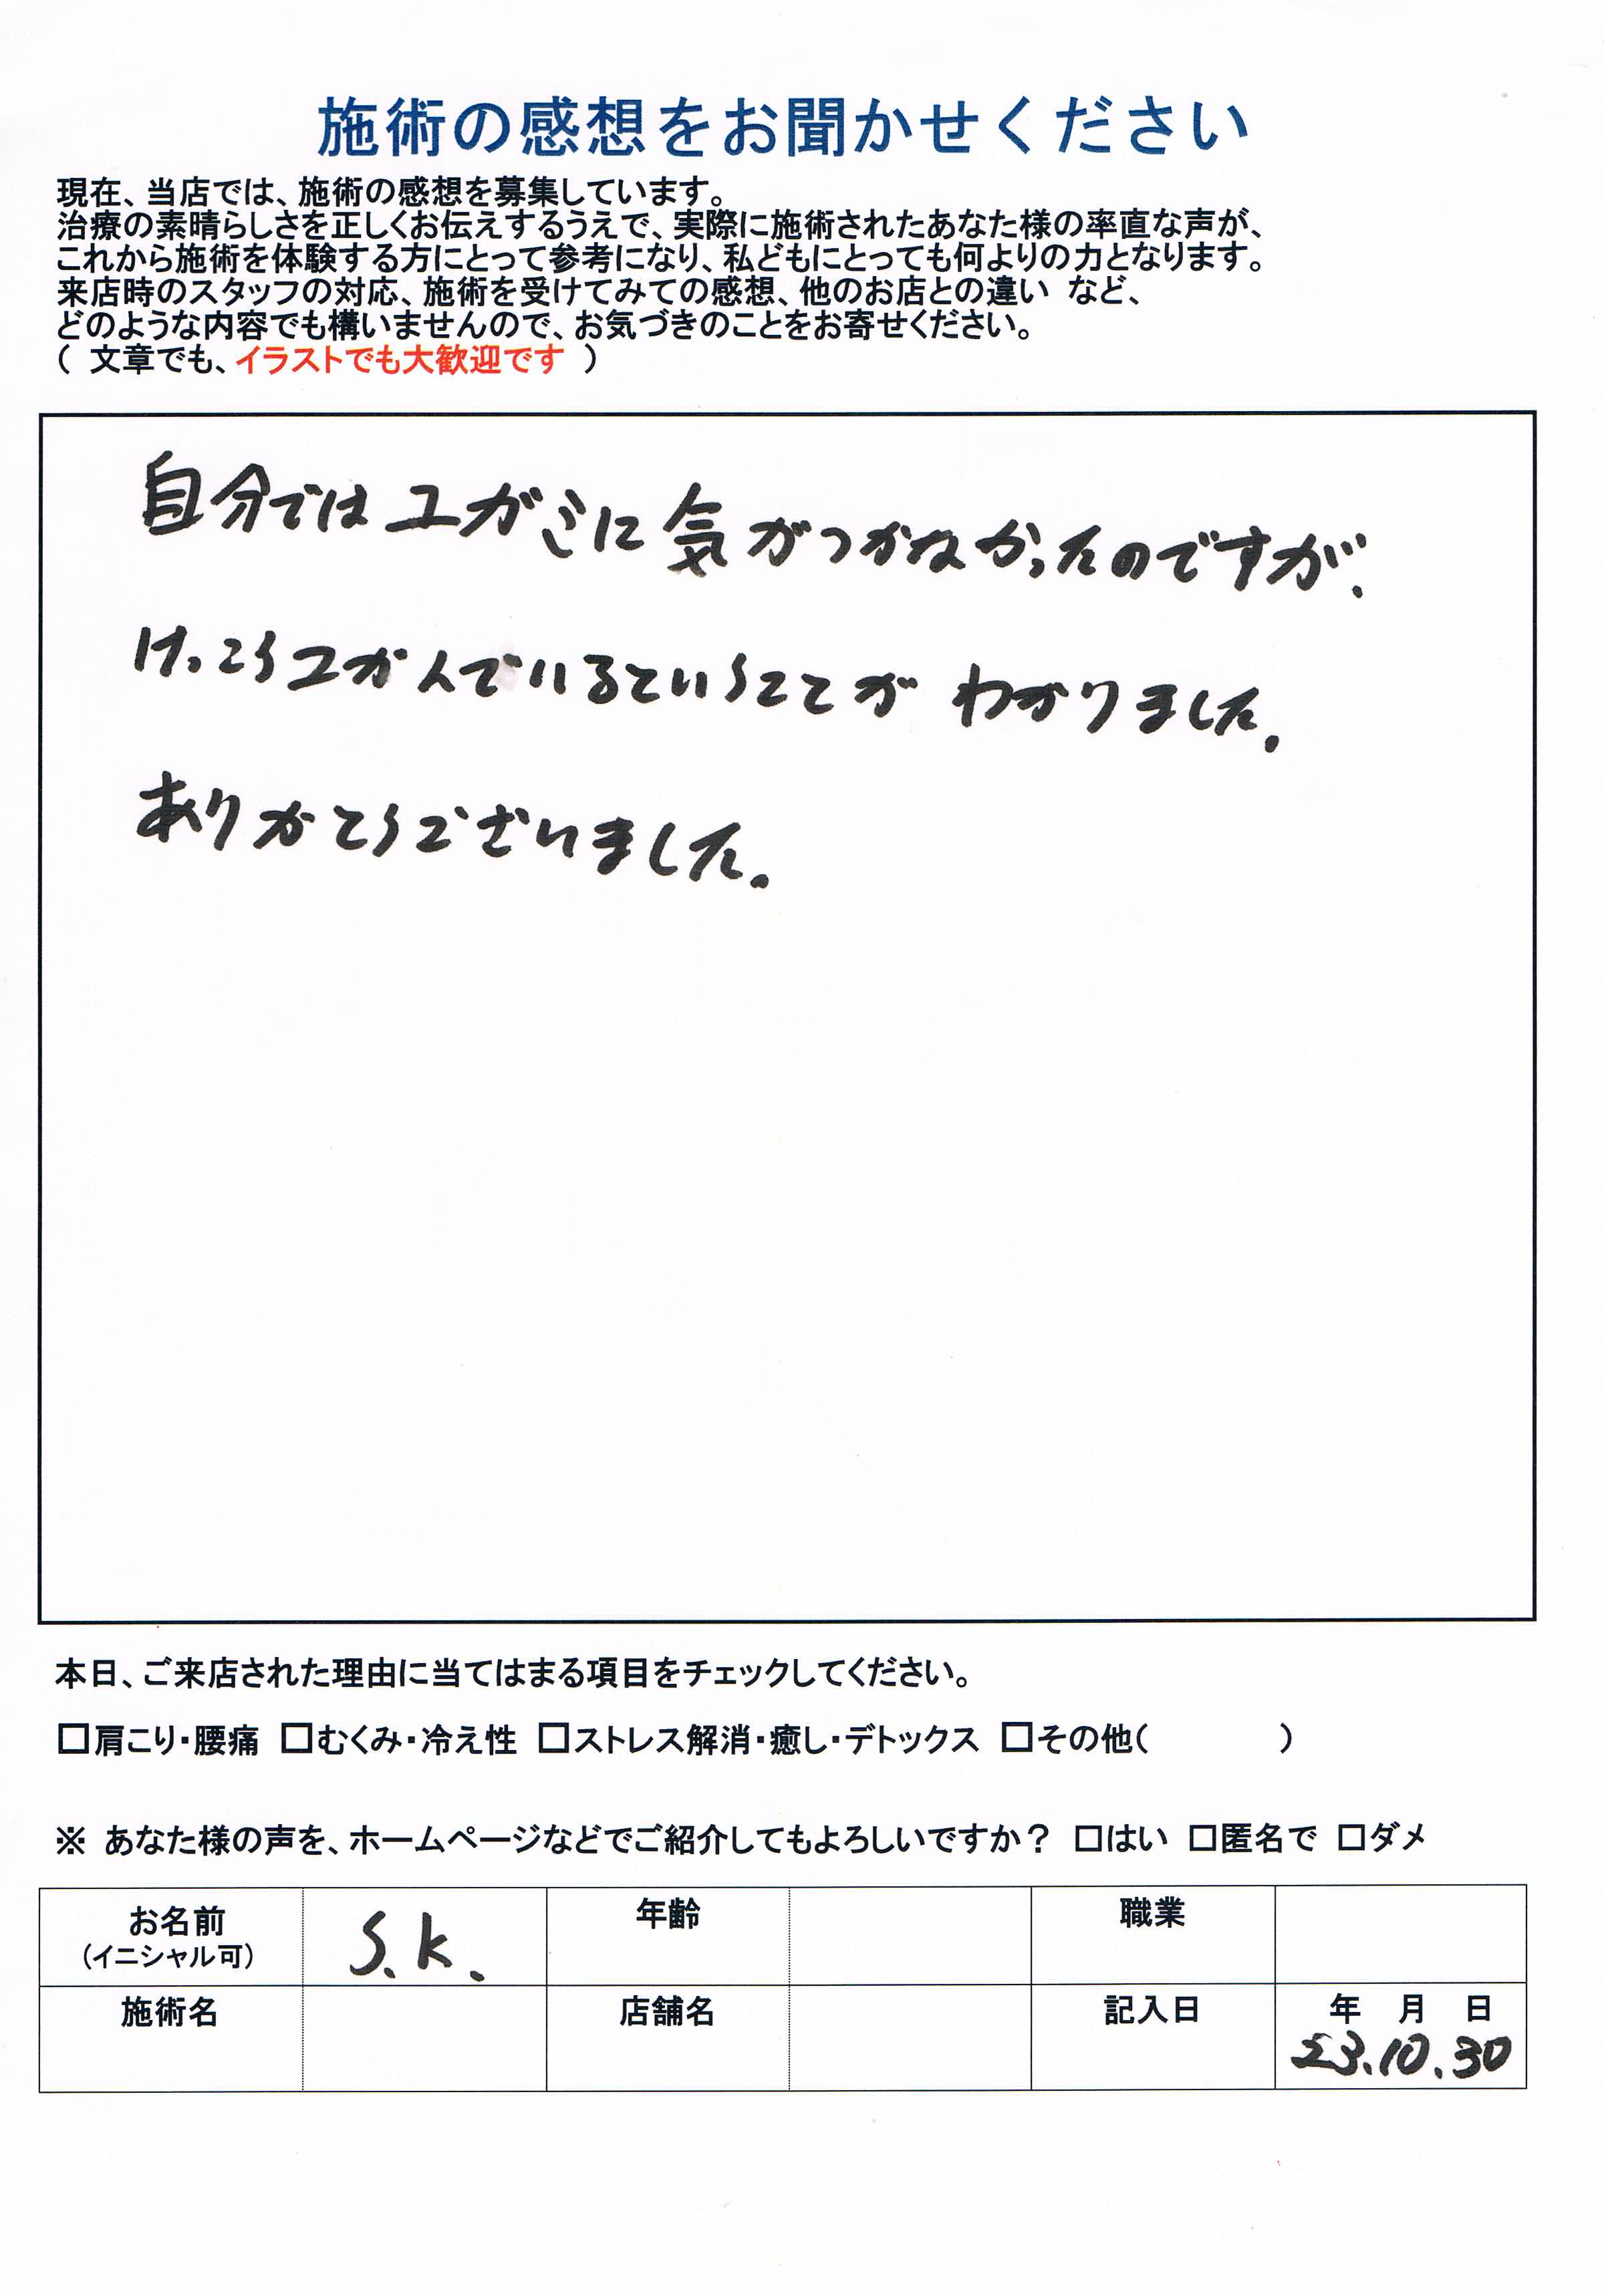 施術の感想をお聞かせください
現在、当店では、施術の感想を募集しています。
治療の素晴らしさを正しくお伝えするうえで、実際に施術されたあなた様の率直な声が、
これから施術を体験する方にとって参考になり、私どもにとっても何よりの力となります。
来店時のスタッフの対応、施術を受けてみての感想、他のお店との違い など、
どのような内容でも構いませんので、お気づきのことをお寄せください。
( 文章でも、イラストでも大歓迎です )
自分ではユガミに気がつかなかったのですが、
けっこうユがんでいるということが わかりました。
ありがとうございました。
本日、ご来店された理由に当てはまる項目をチェックしてください。
□肩こり・腰痛 □むくみ・冷え性 □ストレス解消・癒し・デトックス □その他( )
※ あなた様の声を、ホームページなどでご紹介してもよろしいですか? □はい □匿名で □ダメ
お名前 S.K. 年齢 職業
(イニシャル可)
施術名 店舗名 記入日 年 月 日
23.10.30